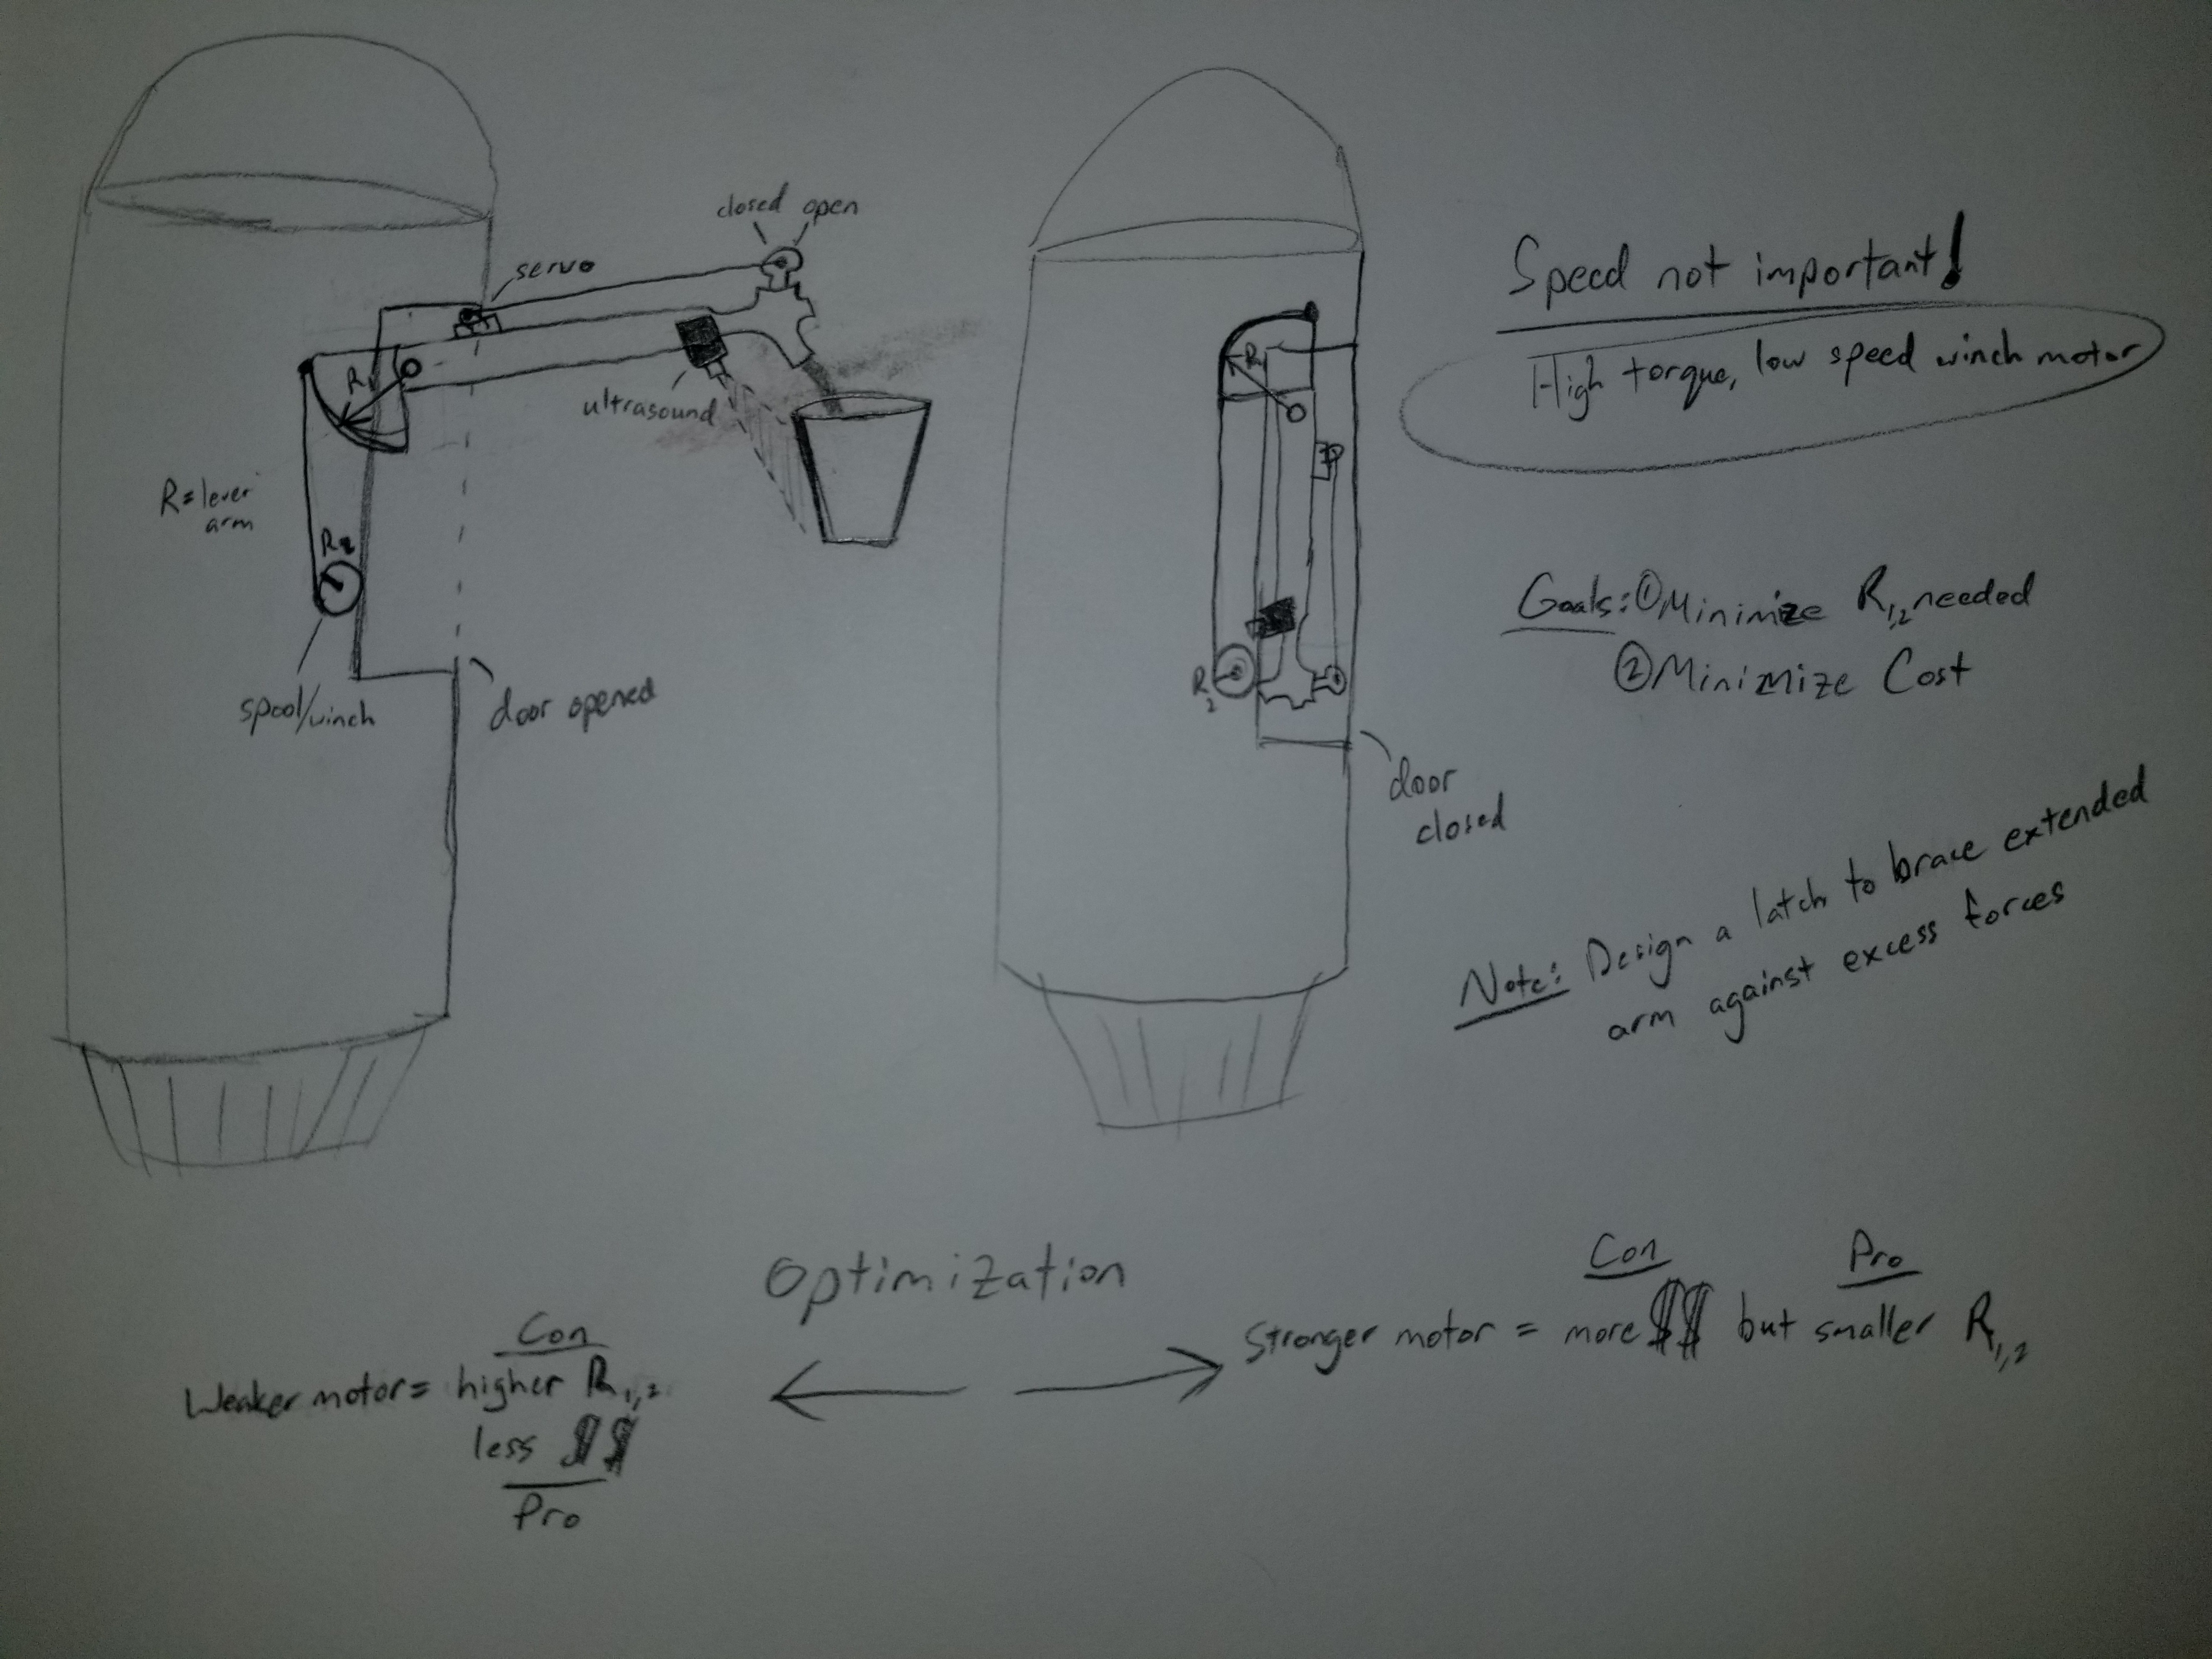 closed open
servo
R₁
ultrasound
R=lever
arm
R₂
spool/winch
door opened
R₁
R₂
door
closed
Speed not important!
High torque, low speed winch motor
Goals: ① Minimize R₁,₂ needed
② Minimize Cost
Note: Design a latch to brace extended
arm against excess forces
Optimization
Con
Weaker motor = higher R₁,₂
less $$
Pro
Con Pro
Stronger motor = more $$ but smaller R₁,₂